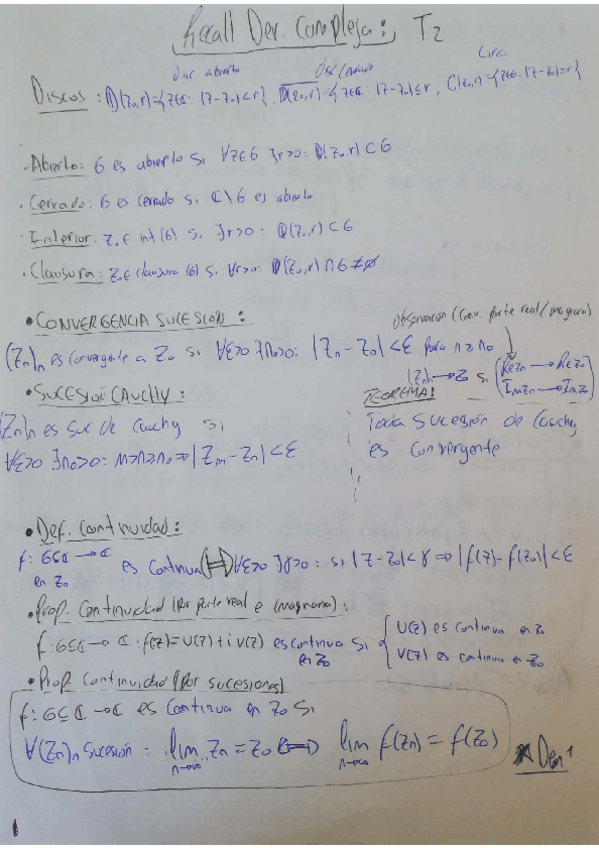 Recall Der. Compleja: T2
Disc abierto Disc Cerrado Circ.
Discos: D(z₀,r)={z∈ℂ: |z-z₀|<r}, D̅(z₀,r)={z∈ℂ: |z-z₀|≤r}, C(z₀,r)={z∈ℂ: |z-z₀|=r}
· Abierto: G es abierto si ∀z∈G ∃r>0: D(z,r)⊂G
· Cerrado: G es cerrado si ℂ\G es abierto
· Interior: z₀∈ int(G) si ∃r>0: D(z₀,r)⊂G
· Clausura: z₀∈ clausura (G) si ∀r>0: D(z₀,r)∩G≠∅
• CONVERGENCIA SUCESIÓN:
(Zn)n es convergente a Z₀ si ∀ε>0 ∃n₀>0: |Zn-Z₀|<ε para n≥n₀
Observación (Conv. parte real/imaginaria)
(Zn)n→Z₀ si (ReZn → ReZ₀
ImZn → ImZ₀)
• SUCESIÓN CAUCHY:
(Zn)n es suc de Cauchy si
∀ε>0 ∃n₀>0: m>n≥n₀ ⇒ |Zm-Zn|<ε
TEOREMA:
Toda Sucesión de Cauchy
es Convergente
• Def. Continuidad:
f: G⊆ℂ→ℂ es Continua ⇔ ∀ε>0 ∃γ>0: si |z-z₀|<γ ⇒ |f(z)-f(z₀)|<ε
en z₀
• Prop. Continuidad (Por parte real e imaginaria):
f: G⊆ℂ→ℂ : f(z)=U(z)+iV(z) es continua si { U(z) es continua en z₀
en z₀ V(z) es continua en z₀
• Prop Continuidad (Por sucesiones)
f: G⊆ℂ→ℂ es Continua en z₀ si
∀(Zn)n Sucesión: lim n→∞ Zn = Z₀ ⇔ lim n→∞ f(Zn) = f(Z₀)
Dem 1
1